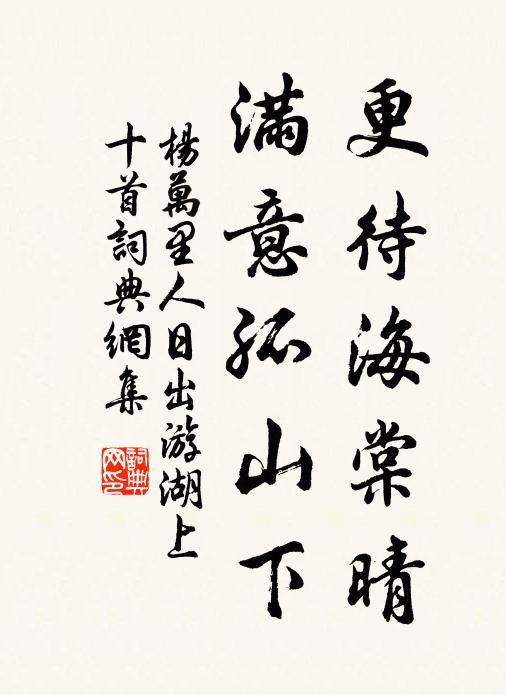 更待海棠晴
滿意孤山下
楊萬里人日出游湖上
十首詞典網集
詞典
网印